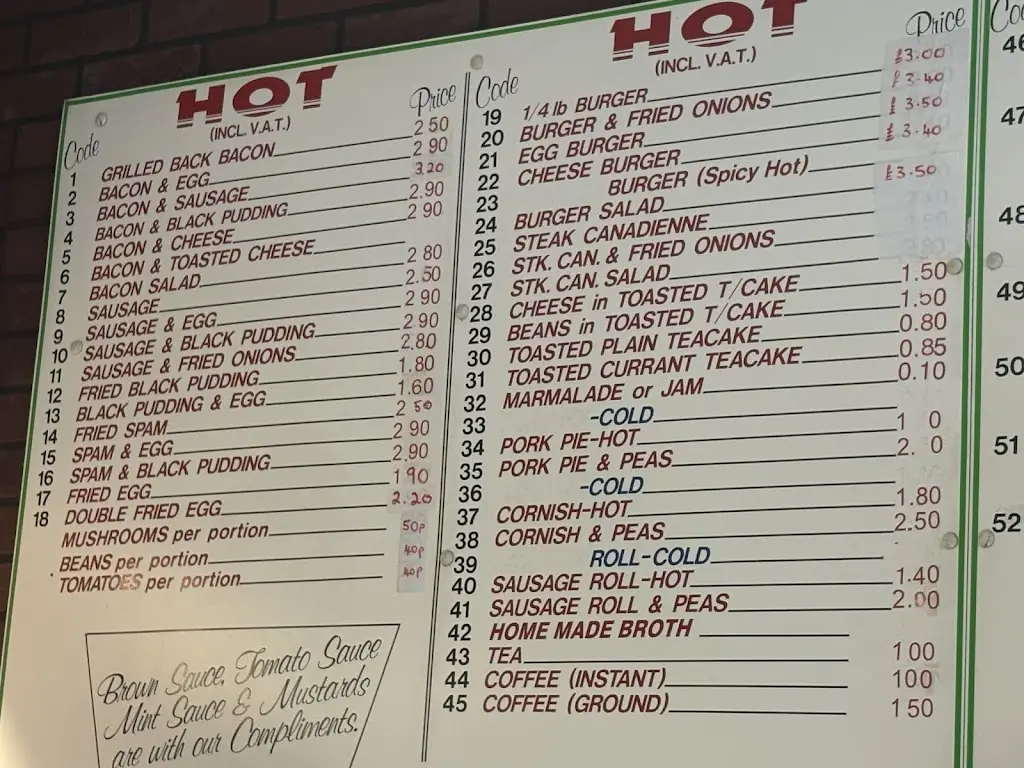 HOT
(INCL. V.A.T.)
Code Price
1 GRILLED BACK BACON 2 50
2 BACON & EGG 2 90
3 BACON & SAUSAGE 3.20
4 BACON & BLACK PUDDING 2.90
5 BACON & CHEESE 2 90
6 BACON & TOASTED CHEESE
7 BACON SALAD 2 80
8 SAUSAGE 2.50
9 SAUSAGE & EGG 2 90
10 SAUSAGE & BLACK PUDDING 2.90
11 SAUSAGE & FRIED ONIONS 2.80
12 FRIED BLACK PUDDING 1.80
13 BLACK PUDDING & EGG 1.60
14 FRIED SPAM 2 50
15 SPAM & EGG 2 90
16 SPAM & BLACK PUDDING 2.90
17 FRIED EGG 1 90
18 DOUBLE FRIED EGG 2.20
MUSHROOMS per portion 50p
BEANS per portion 40p
TOMATOES per portion 40p
Brown Sauce, Tomato Sauce
Mint Sauce & Mustards
are with our Compliments.
HOT
(INCL. V.A.T.)
Code Price
19 1/4 lb BURGER £3.00
20 BURGER & FRIED ONIONS £3.40
21 EGG BURGER £3.50
22 CHEESE BURGER £3.40
23 BURGER (Spicy Hot) £3.50
24 BURGER SALAD
25 STEAK CANADIENNE
26 STK. CAN. & FRIED ONIONS
27 STK. CAN. SALAD
28 CHEESE in TOASTED T/CAKE 1.50
29 BEANS in TOASTED T/CAKE 1.50
30 TOASTED PLAIN TEACAKE 0.80
31 TOASTED CURRANT TEACAKE 0.85
32 MARMALADE or JAM 0.10
33 -COLD
34 PORK PIE-HOT 1 0
35 PORK PIE & PEAS 2. 0
36 -COLD
37 CORNISH-HOT 1.80
38 CORNISH & PEAS 2.50
39 ROLL-COLD
40 SAUSAGE ROLL-HOT 1.40
41 SAUSAGE ROLL & PEAS 2.00
42 HOME MADE BROTH
43 TEA 1 00
44 COFFEE (INSTANT) 1 00
45 COFFEE (GROUND) 1 50
46
47
48
49
50
51
52